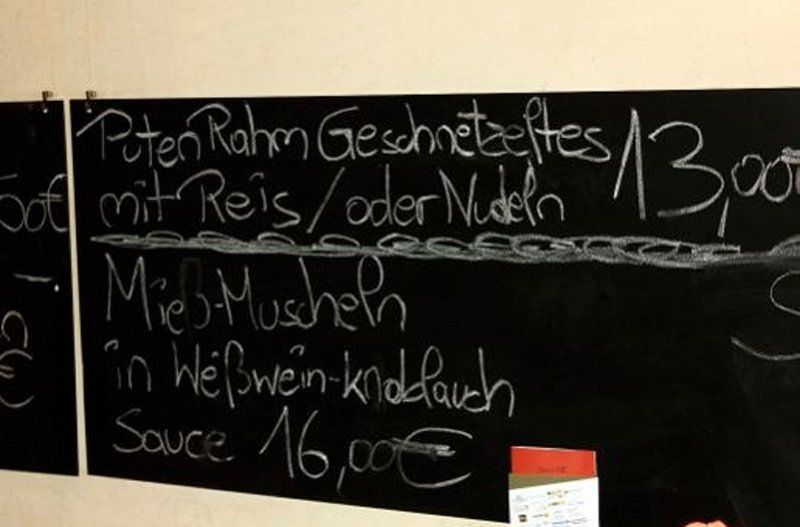 Puten Rahm Geschnetzeltes 13,00€
mit Reis / oder Nudeln
Mieß-Muscheln
in Weißwein-knoblauch
Sauce 16,00€
00€
€